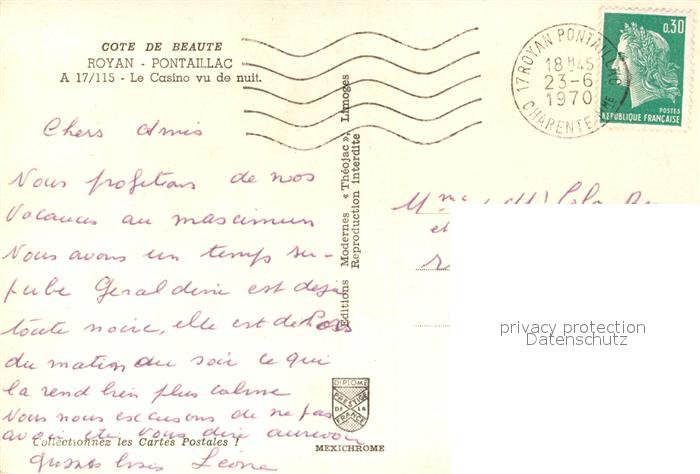 COTE DE BEAUTE
ROYAN - PONTAILLAC
A 17/115 - Le Casino vu de nuit.
Chers Amis
Nous profitons de nos
vacances au mascimun
Nous avons un temps su-
perbe Geraldine est deja
toute noire, elle est dehors
du matin au soir ce qui
la rend bien plus calme
Nous nous excusons de ne pas
avoir ete vous dire aurevoir
Grosses bises Léone
Collectionnez les Cartes Postales !
Editions Modernes « Théojac », Limoges
Reproduction interdite
DIPLOME
PRESTIGE
DE LA
FRANCE
MEXICHROME
17 ROYAN PONTAILLAC
18H45
23-6
1970
CHARENTE
0,30
POSTES
REPUBLIQUE FRANÇAISE
et
privacy protection
Datenschutz